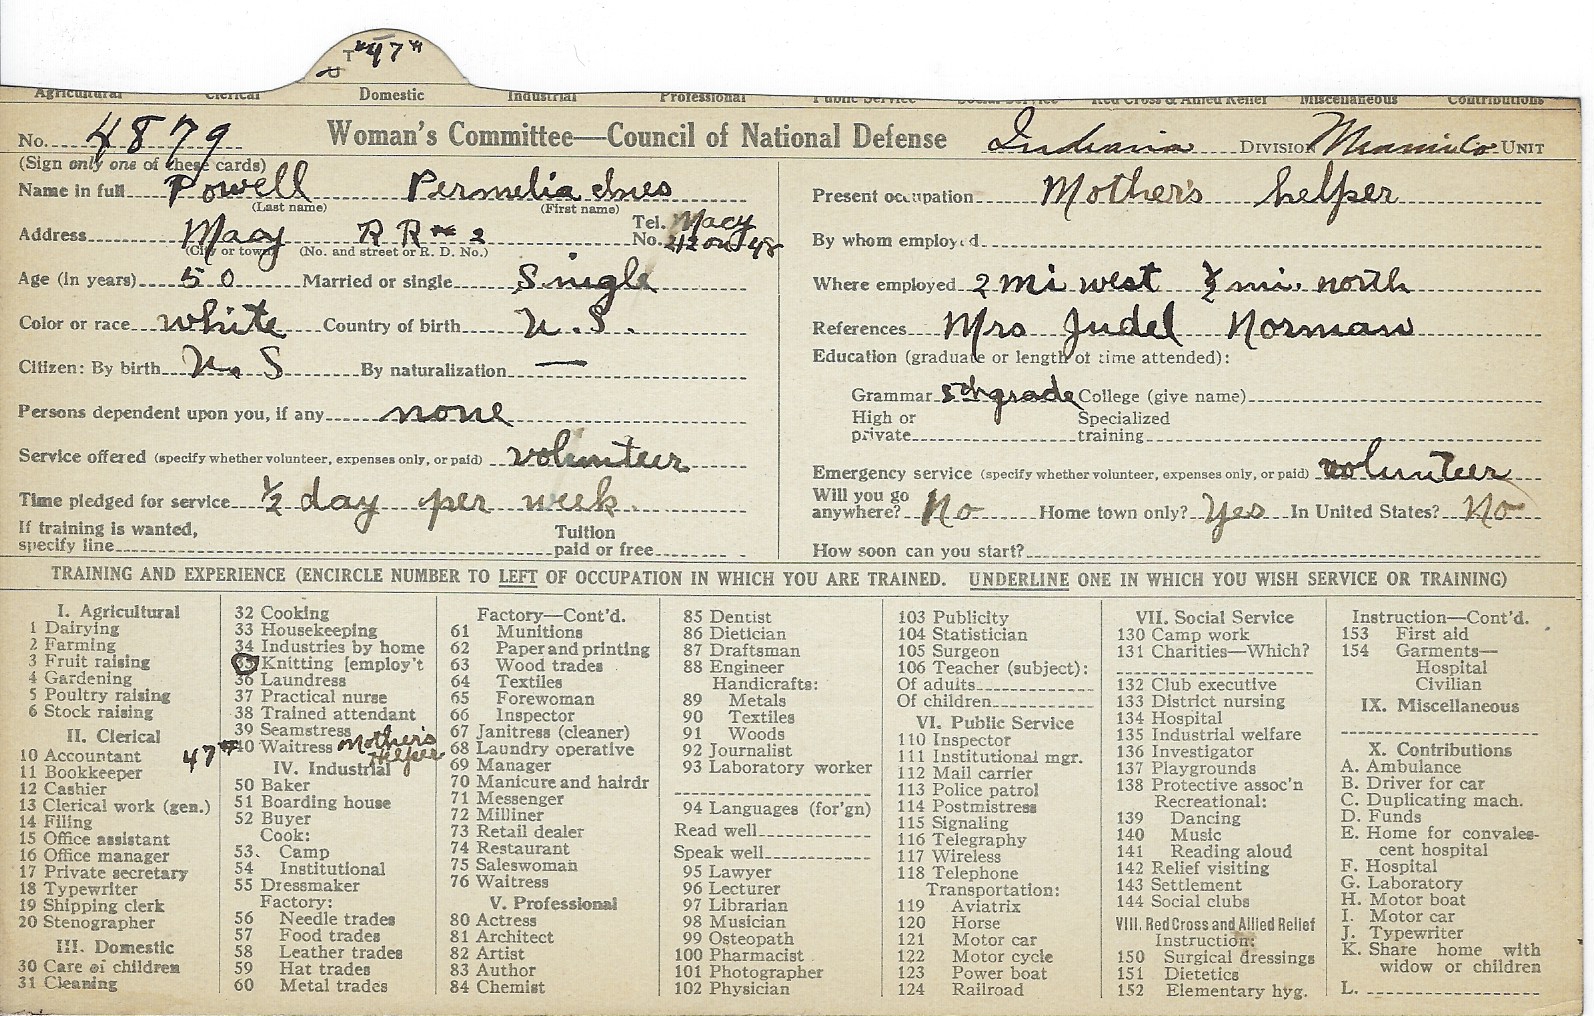 "47"
Agricultural Clerical Domestic Industrial Professional Public Service Social Service Red Cross & Allied Relief Miscellaneous Contributions
No. 4879 Woman's Committee—Council of National Defense Indiana DIVISION Miami Co UNIT
(Sign only one of these cards)
Name in full Powell Permelia Ines
(Last name) (First name)
Address Macy R R # 2 Tel. No. Macy 212 on 48
(City or town) (No. and street or R. D. No.)
Age (in years) 50 Married or single Single
Color or race white Country of birth U. S.
Citizen: By birth U. S By naturalization —
Persons dependent upon you, if any none
Service offered (specify whether volunteer, expenses only, or paid) volunteer
Time pledged for service ½ day per week.
If training is wanted, specify line Tuition paid or free
Present occupation Mother's helper
By whom employed
Where employed 2 mi west ½ mi. north
References Mrs Judel Norman
Education (graduate or length of time attended):
Grammar 5th grade College (give name)
High or private Specialized training
Emergency service (specify whether volunteer, expenses only, or paid) volunteer
Will you go anywhere? No Home town only? Yes In United States? No
How soon can you start?
TRAINING AND EXPERIENCE (ENCIRCLE NUMBER TO LEFT OF OCCUPATION IN WHICH YOU ARE TRAINED. UNDERLINE ONE IN WHICH YOU WISH SERVICE OR TRAINING)
I. Agricultural
1 Dairying
2 Farming
3 Fruit raising
4 Gardening
5 Poultry raising
6 Stock raising
II. Clerical
10 Accountant
11 Bookkeeper
12 Cashier
13 Clerical work (gen.)
14 Filing
15 Office assistant
16 Office manager
17 Private secretary
18 Typewriter
19 Shipping clerk
20 Stenographer
III. Domestic
30 Care of children
31 Cleaning
32 Cooking
33 Housekeeping
34 Industries by home
35 Knitting [employ't
36 Laundress
37 Practical nurse
38 Trained attendant
39 Seamstress
40 Waitress Mother's Helper
47 #
IV. Industrial
50 Baker
51 Boarding house
52 Buyer
Cook:
53. Camp
54 Institutional
55 Dressmaker
Factory:
56 Needle trades
57 Food trades
58 Leather trades
59 Hat trades
60 Metal trades
Factory—Cont'd.
61 Munitions
62 Paper and printing
63 Wood trades
64 Textiles
65 Forewoman
66 Inspector
67 Janitress (cleaner)
68 Laundry operative
69 Manager
70 Manicure and hairdr
71 Messenger
72 Milliner
73 Retail dealer
74 Restaurant
75 Saleswoman
76 Waitress
V. Professional
80 Actress
81 Architect
82 Artist
83 Author
84 Chemist
85 Dentist
86 Dietician
87 Draftsman
88 Engineer
Handicrafts:
89 Metals
90 Textiles
91 Woods
92 Journalist
93 Laboratory worker
94 Languages (for'gn)
Read well
Speak well
95 Lawyer
96 Lecturer
97 Librarian
98 Musician
99 Osteopath
100 Pharmacist
101 Photographer
102 Physician
103 Publicity
104 Statistician
105 Surgeon
106 Teacher (subject):
Of adults
Of children
VI. Public Service
110 Inspector
111 Institutional mgr.
112 Mail carrier
113 Police patrol
114 Postmistress
115 Signaling
116 Telegraphy
117 Wireless
118 Telephone
Transportation:
119 Aviatrix
120 Horse
121 Motor car
122 Motor cycle
123 Power boat
124 Railroad
VII. Social Service
130 Camp work
131 Charities—Which?
132 Club executive
133 District nursing
134 Hospital
135 Industrial welfare
136 Investigator
137 Playgrounds
138 Protective assoc'n
Recreational:
139 Dancing
140 Music
141 Reading aloud
142 Relief visiting
143 Settlement
144 Social clubs
VIII. Red Cross and Allied Relief
Instruction:
150 Surgical dressings
151 Dietetics
152 Elementary hyg.
Instruction—Cont'd.
153 First aid
154 Garments—
Hospital
Civilian
IX. Miscellaneous
X. Contributions
A. Ambulance
B. Driver for car
C. Duplicating mach.
D. Funds
E. Home for convales-
cent hospital
F. Hospital
G. Laboratory
H. Motor boat
I. Motor car
J. Typewriter
K. Share home with
widow or children
L.